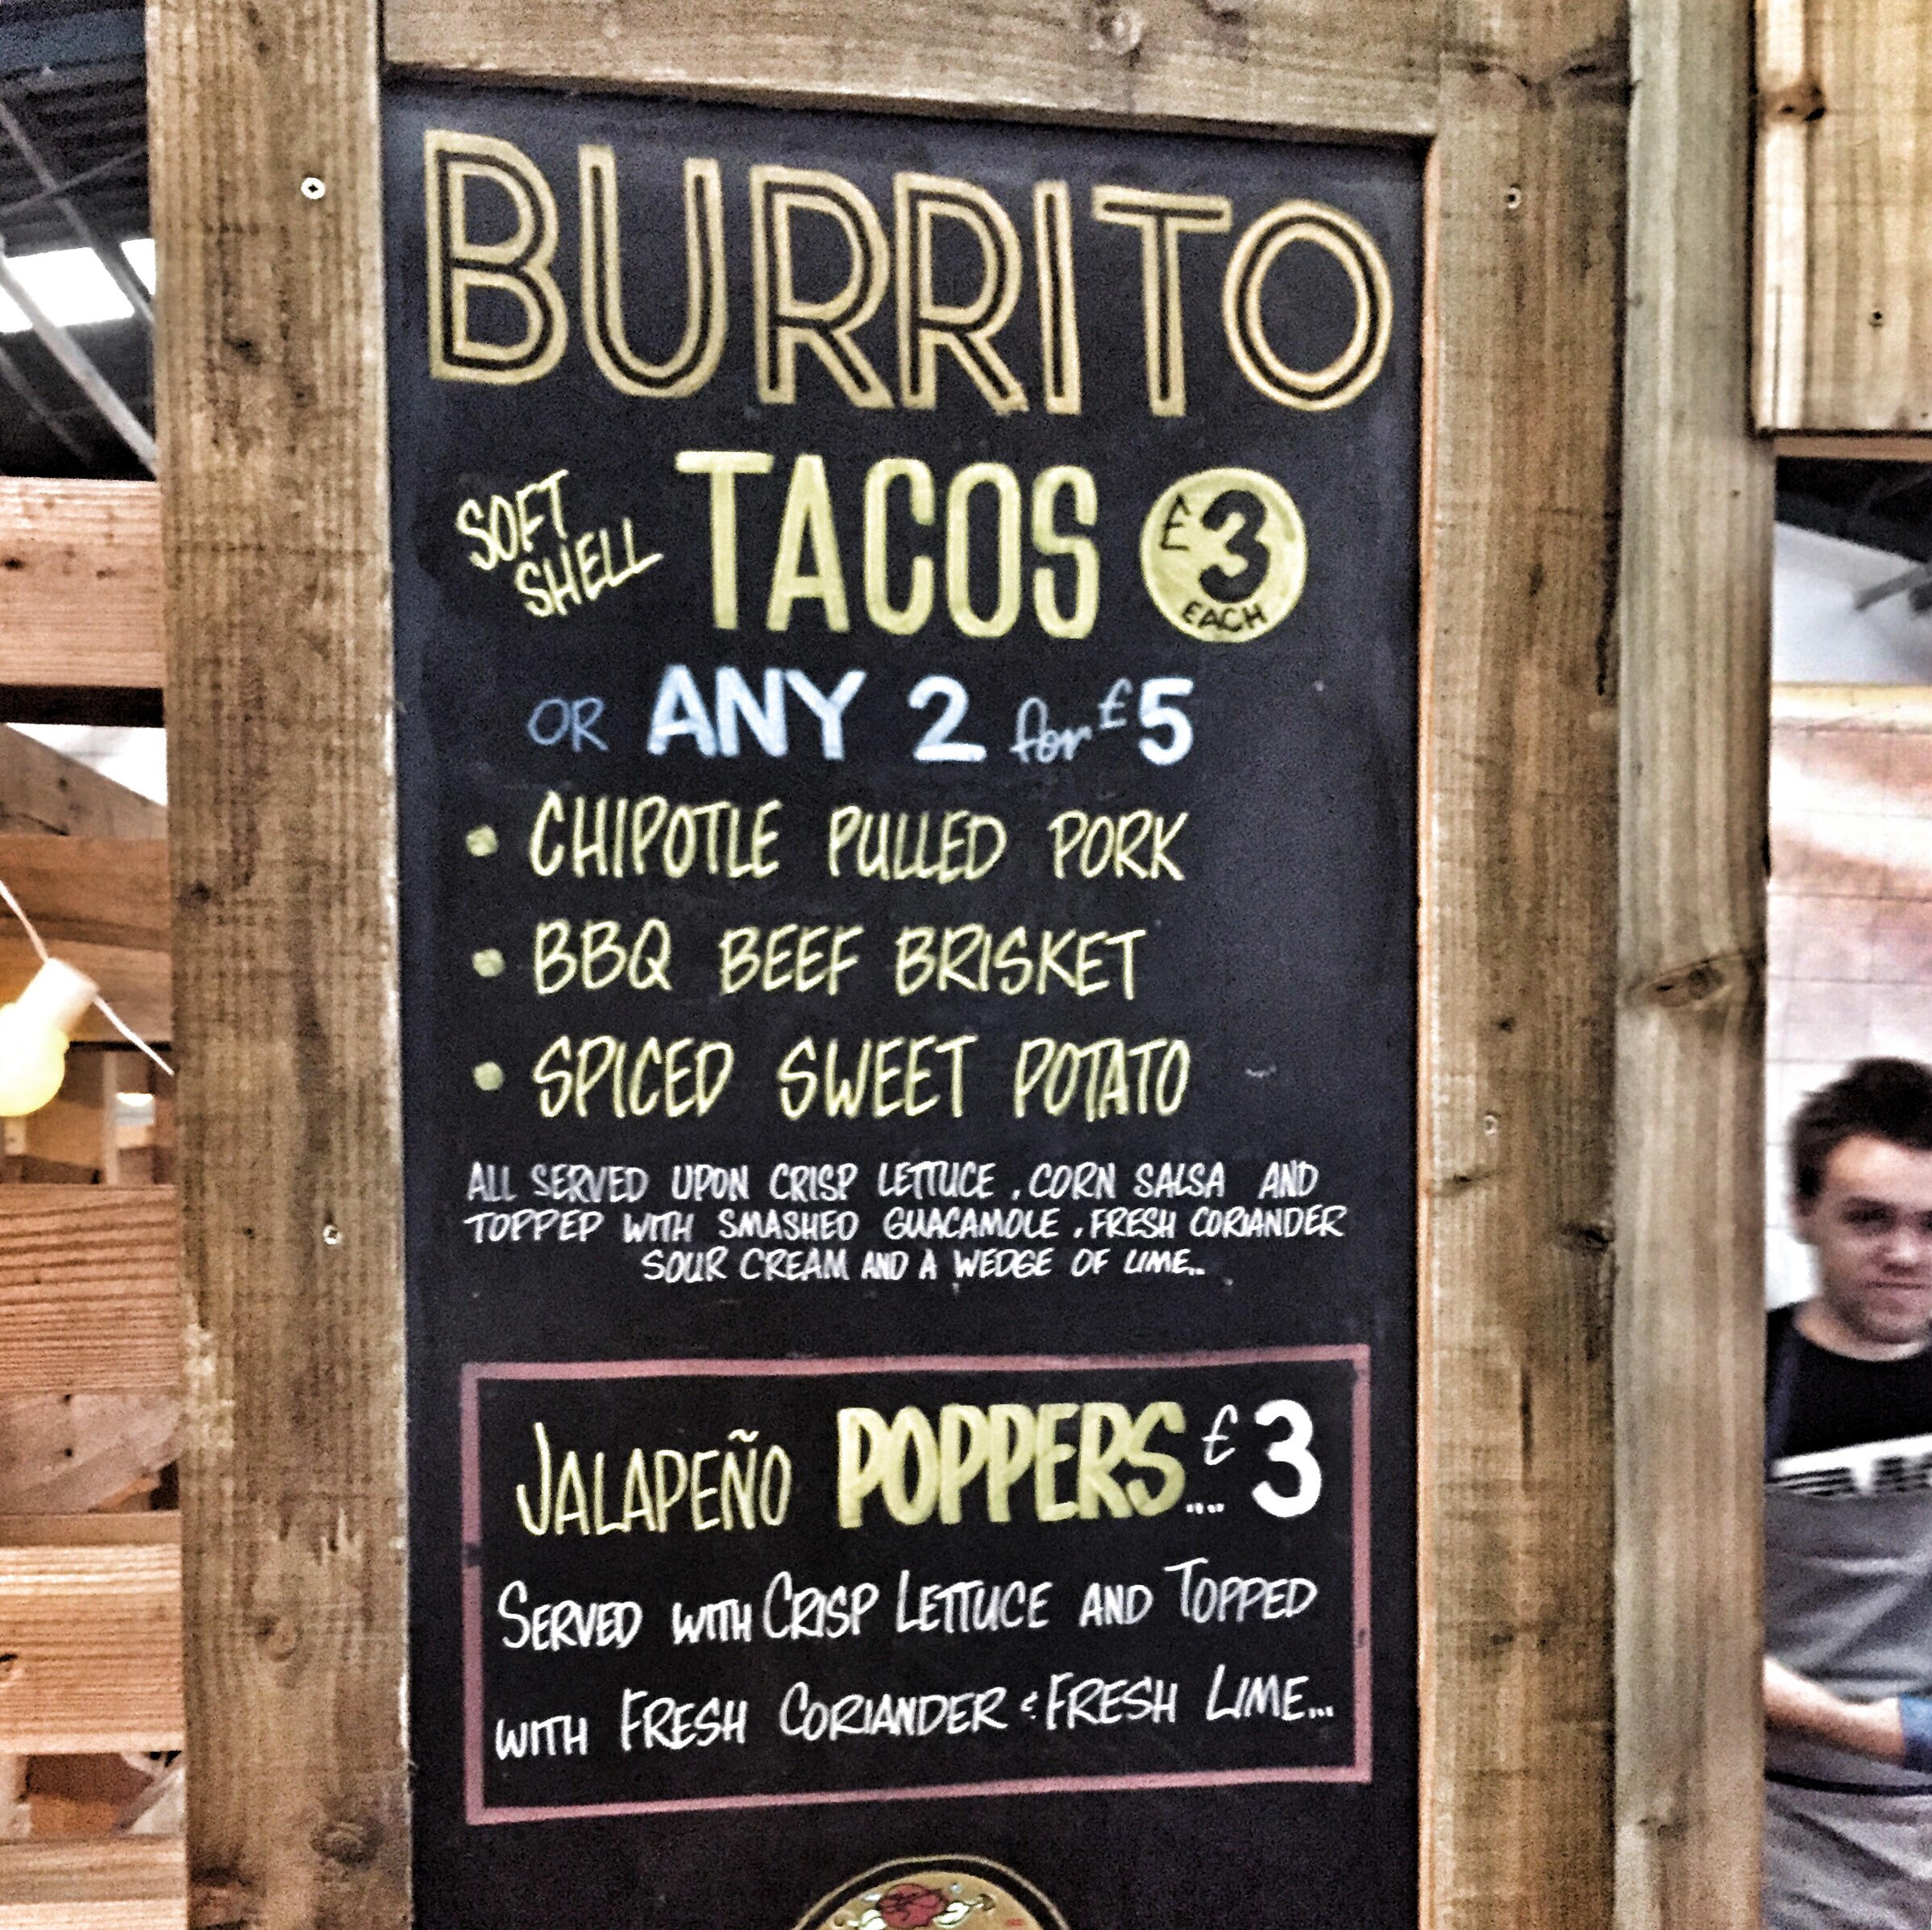 BURRITO
SOFT SHELL TACOS £3 EACH
OR ANY 2 for £5
• CHIPOTLE PULLED PORK
• BBQ BEEF BRISKET
• SPICED SWEET POTATO
ALL SERVED UPON CRISP LETTUCE, CORN SALSA AND
TOPPED WITH SMASHED GUACAMOLE, FRESH CORIANDER
SOUR CREAM AND A WEDGE OF LIME..
JALAPEÑO POPPERS....£3
SERVED WITH CRISP LETTUCE AND TOPPED
WITH FRESH CORIANDER & FRESH LIME...